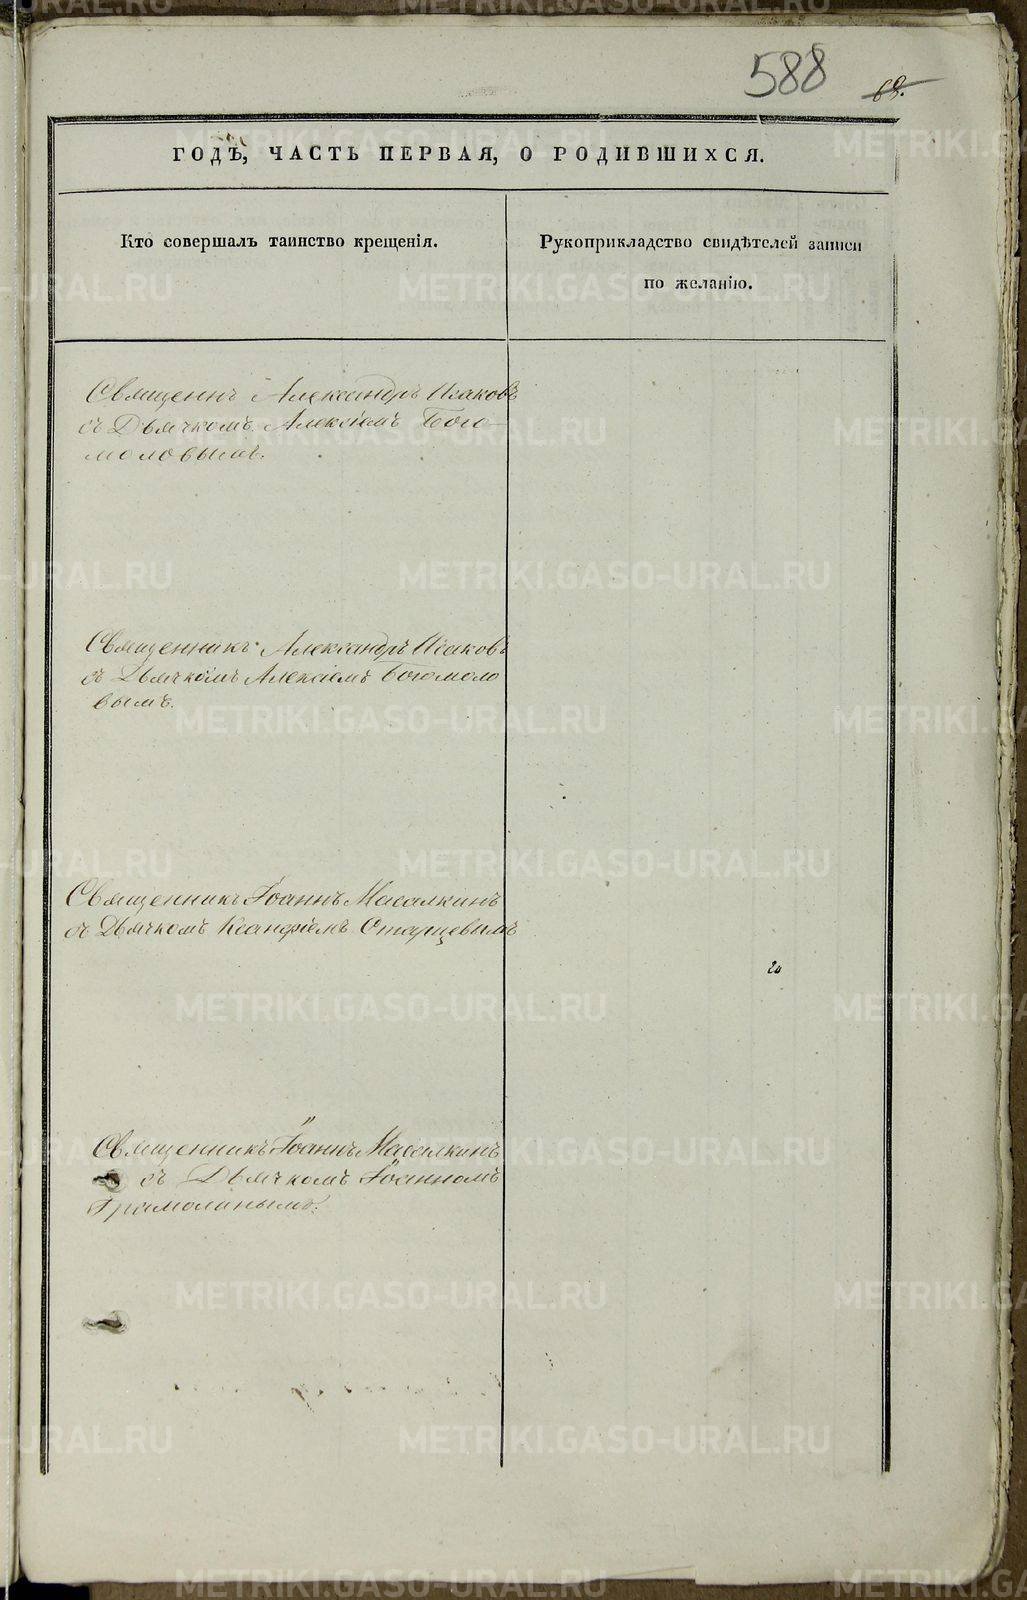 588
69.
ГОДЪ, ЧАСТЬ ПЕРВАЯ, О РОДИВШИХСЯ.
Кто совершалъ таинство крещенія.
Рукоприкладство свидѣтелей записи
по желанію.
Священнъ Александръ Исаковъ
съ Дьячкомъ Алексіемъ Бого-
моловымъ.
Священникъ Александръ Исаковъ
съ Дьячкомъ Алексіемъ Богомоло
вымъ.
Священникъ Іоаннъ Масалкинъ
съ Дьячкомъ Ксанфіемъ Старцевымъ
Священникъ Іоаннъ Масалкинъ
съ Дьячкомъ Іоанномъ
Грамолинымъ.
METRIKI.GASO-URAL.RU